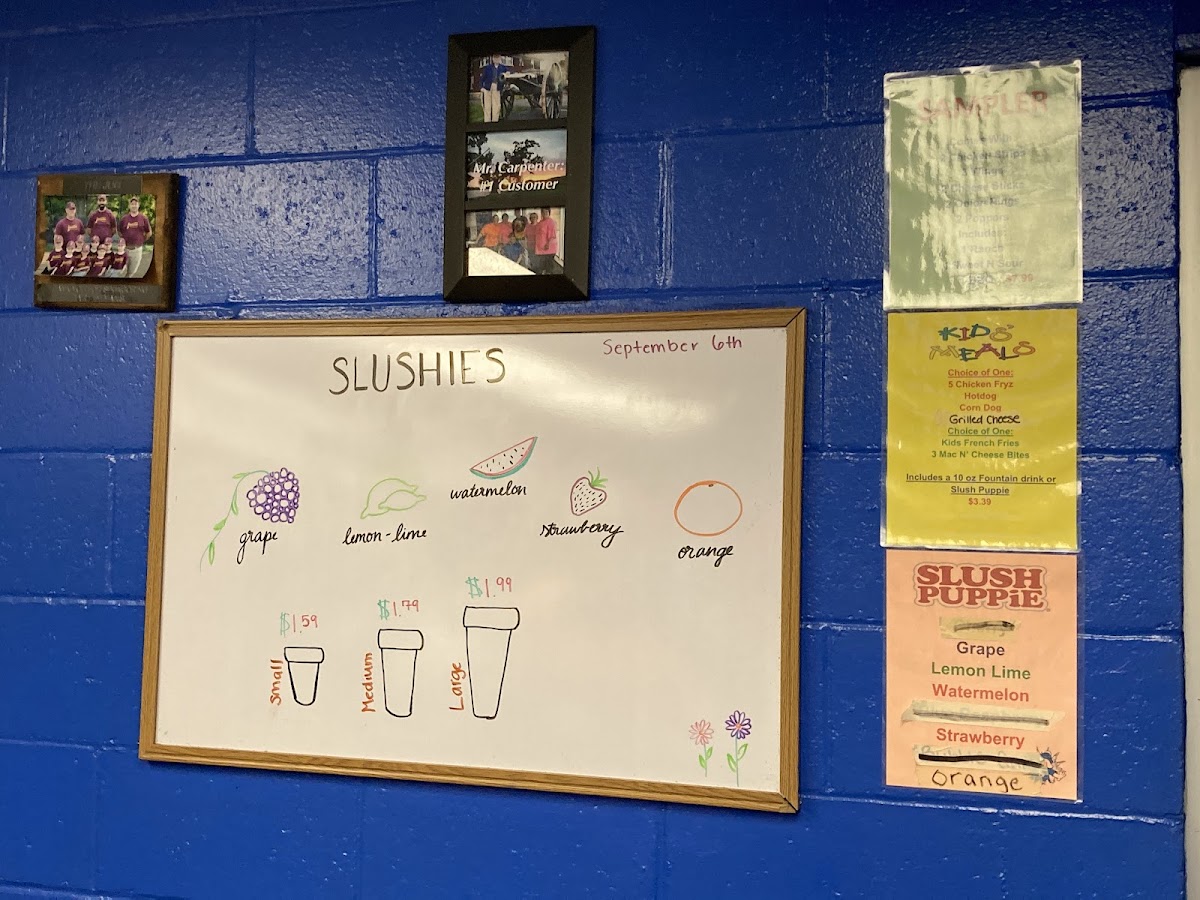 Mr. Carpenter:
#1 Customer
SLUSHIES
September 6th
grape
lemon-lime
watermelon
strawberry
orange
$1.59
$1.79
$1.99
Small
Medium
Large
SAMPLER
Strips
Rings
Poppers
Includes:
Ranch
KIDS
MEALS
Choice of One:
5 Chicken Fryz
Hotdog
Corn Dog
Grilled Cheese
Choice of One:
Kids French Fries
3 Mac N' Cheese Bites
Includes a 10 oz Fountain drink or
Slush Puppie
$3.39
SLUSH
PUPPiE
Grape
Lemon Lime
Watermelon
Strawberry
orange